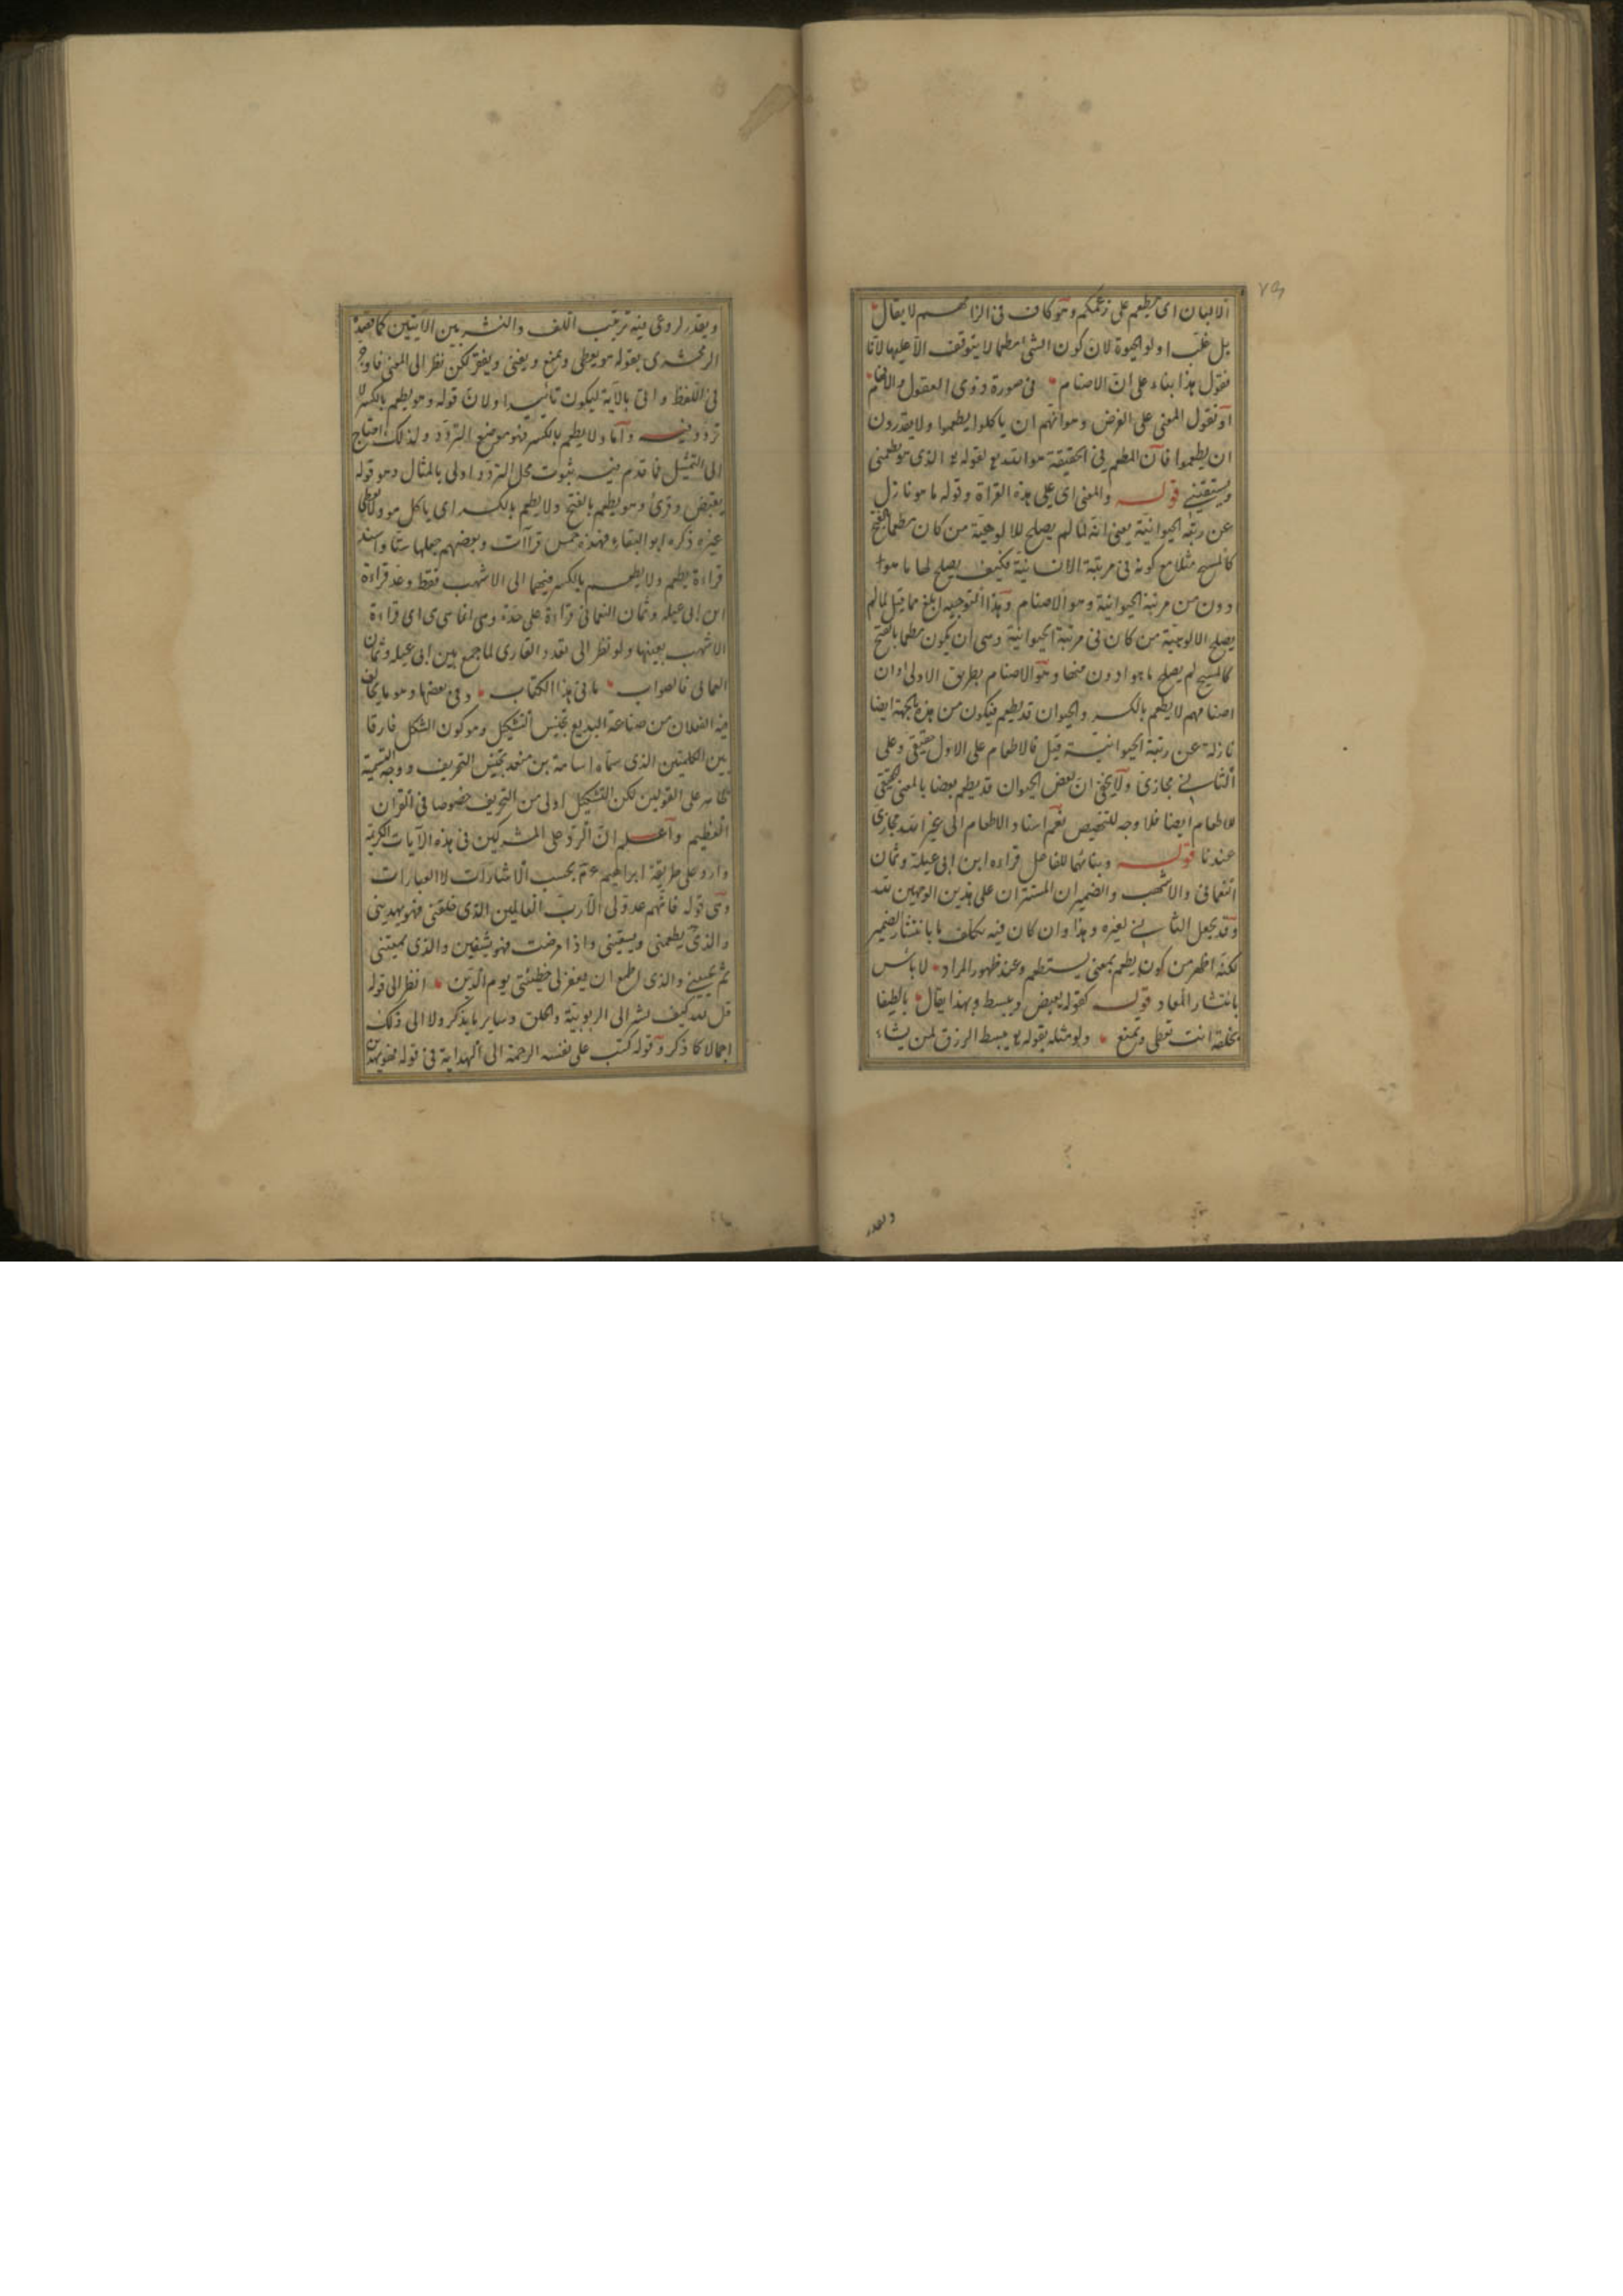 الالبان اى يطعم على زعمكم وهو كاف فى الزامهم لا يقال
بل غلب اولو الحيوة لان كون الشئ مطعما لا يتوقف الا عليها لانا
فنقول هذا بناء على ان الاصنام فى صورة ذوى العقول
او نقول المعنى على الفرض وهو انهم ان ياكلوا يطعموا ولا يقدرون
ان يطعموا فان المطعم فى الحقيقة هو الله لقوله الذى هو يطعمنى
ويسقينى قوله والمعنى اى على هذه القراة وقوله ما هو نازل
عن رتبة الحيوانية يعنى انه لما لم يصلح للالوهية من كان مطعما بالفتح
كالمسيح مثلا مع كونه فى مرتبة الانسانية فكيف يصلح لها ما هو
ادون من مرتبة الحيوانية وهو الاصنام وهذا التوجيه ابلغ مما قيل لما لم
يصلح الالوهية من كان فى مرتبة الحيوانية وهى ان يكون مطعما بالفتح
كالمسيح لم يصلح ما هو ادون منها وهو الاصنام بطريق الاولى اذ ان
اصنامهم لا يطعم بالكسر والحيوان قد يطعم فيكون من هذه الجهة ايضا
نازلة عن رتبة الحيوانية قيل فالاطعام على الاول حقيقى وعلى
الثانى مجازى ولا يخفى ان بعض الحيوان قد يطعم بعضا بالمعنى الحقيقى
للاطعام ايضا فلا وجه للتخصيص نعم اسناد الاطعام الى غير الله مجازى
عندنا قوله وبنائهما للفاعل قراءة ابن ابى عبلة وثمان
النعمانى والاشهب والضميران المستتران على هذين الوجهين لله
وقد يجعل الثانى لغيره وهذا وان كان فيه تكلف بانتشار الضمير
لكنه اظهر من كون يطعم بمعنى يستطعم وعند ظهور المراد لا باس
بانتشار المعاد قوله كقوله يقبض ويبسط وبهذا يقال يا لطيفا
بخلقه انت تعطى وتمنع ولو مثله بقوله يبسط الرزق لمن يشاء
ويقدر
ويقدر لروعى فيه ترتيب اللف والنشر بين الايتين كما
الزمخشرى بقوله هو يعطى ويمنع ويغنى ويفقر لكن نظر الى المعنى
فى اللفظ واتى بالآية ليكون تائيدا ولان قوله وهو يطعم بالكسر لا
تردد فيه واما ولا يطعم بالكسر فهو موضع التردد ولذلك احتاج
الى التمثيل فاقدم فيه ثبوت محل التردد اولى بالمثال وهو قوله
يقبض وقرئ وهو يطعم بالفتح ولا يطعم بالكسر اى ياكل هو ولا يطعم
غيره ذكره ابو البقاء فهذه خمس قراآت وبعضهم جعلها ستا واسند
قراءة يطعم ولا يطعم بالكسر فيهما الى الاشهب فقط وعد قراءة
ابن ابى عبلة وثمان النعمانى قراءة على حدة وهى انما هى اى قراءة
الاشهب بعينها ولو نظر الى تعدد القارى لما جمع بين ابى عبلة وثمان
العمانى فالصواب ما فى هذا الكتاب وفى بعضها وهو ما يخالف
فيه الفعلان من صناعة البديع تجنيس التشكيل وهو كون الشكل فارقا
بين الكلمتين الذى سماه اسامة بن منقد تجنيس التحريف ووجه التسمية
ظاهر على القولين لكن التشكيل اولى من التحريف خصوصا فى القرآن
العظيم واعلم ان الرد على المشركين فى هذه الآيات الكريمة
وارد على طريقة ابراهيم عم بحسب الاشارات لا العبارات
وهى قوله فانهم عدو لى الا رب العالمين الذى خلقنى فهو يهدينى
والذى يطعمنى ويسقينى واذا مرضت فهو يشفين والذى يميتنى
ثم يحيينى والذى اطمع ان يغفر لى خطيئتى يوم الدين انظر الى قوله
قل لله كيف يشر الى الربوبية والخلق وساير ما يذكر ولا الى ذلك
اجمالا كما ذكر وقوله كتب على نفسه الرحمة الى الهداية فى قوله فهو يهدين